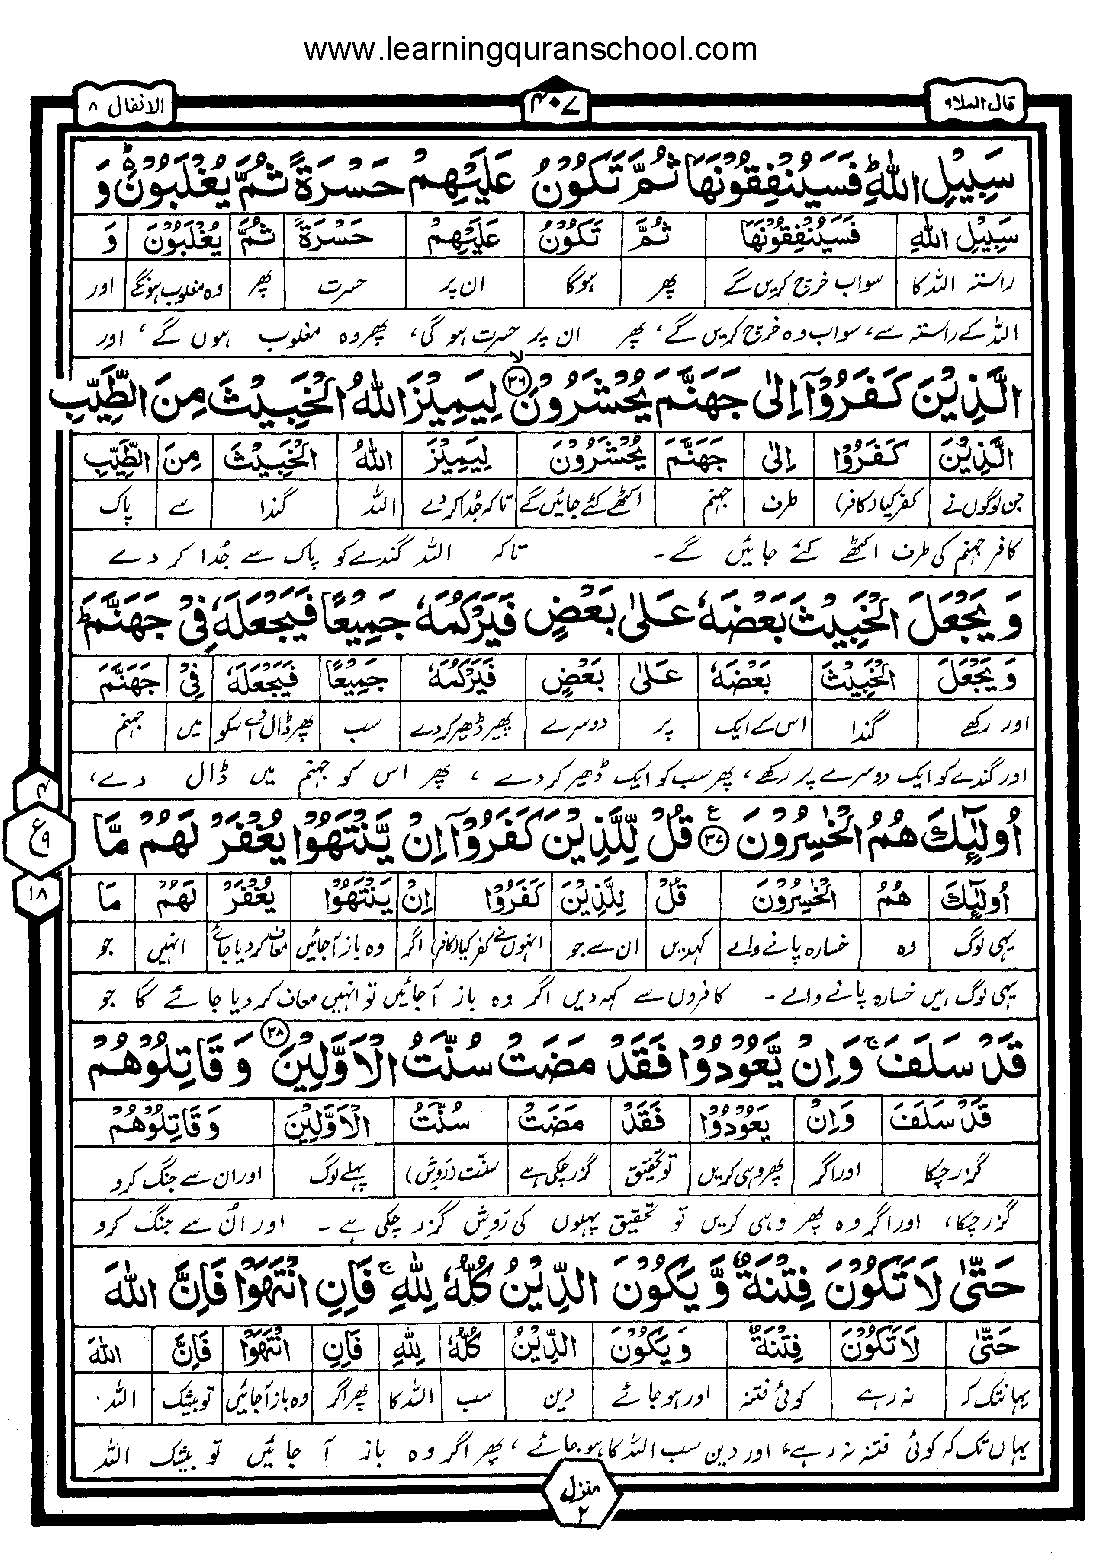 www.learningquranschool.com
قال الملا۹ ۴۰۷ الانفال ۸
سَبِيْلِ اللّٰهِ ؕ فَسَيُنْفِقُوْنَهَا ثُمَّ تَكُوْنُ عَلَيْهِمْ حَسْرَةً ثُمَّ يُغْلَبُوْنَ ؕ وَ
سَبِيْلِ اللّٰهِ فَسَيُنْفِقُوْنَهَا ثُمَّ تَكُوْنُ عَلَيْهِمْ حَسْرَةً ثُمَّ يُغْلَبُوْنَ وَ
راستہ اللہ کا سو اب خرچ کریں گے پھر ہوگا ان پر حسرت پھر وہ مغلوب ہونگے اور
اللہ کے راستہ سے، سو اب وہ خرچ کریں گے، پھر ان پر حسرت ہو گی، پھر وہ مغلوب ہوں گے، اور
الَّذِيْنَ كَفَرُوْۤا اِلٰى جَهَنَّمَ يُحْشَرُوْنَ ۙ۳۶ لِيَمِيْزَ اللّٰهُ الْخَبِيْثَ مِنَ الطَّيِّبِ
الَّذِيْنَ كَفَرُوْا اِلٰى جَهَنَّمَ يُحْشَرُوْنَ لِيَمِيْزَ اللّٰهُ الْخَبِيْثَ مِنَ الطَّيِّبِ
جن لوگوں نے کفر کیا (کافر) طرف جہنم اکٹھے کئے جائیں گے تاکہ جُدا کر دے اللہ گندا سے پاک
کافر جہنم کی طرف اکٹھے کئے جائیں گے۔ تاکہ اللہ گندے کو پاک سے جُدا کر دے
وَ يَجْعَلَ الْخَبِيْثَ بَعْضَهٗ عَلٰى بَعْضٍ فَيَرْكُمَهٗ جَمِيْعًا فَيَجْعَلَهٗ فِيْ جَهَنَّمَ ؕ
وَ يَجْعَلَ الْخَبِيْثَ بَعْضَهٗ عَلٰى بَعْضٍ فَيَرْكُمَهٗ جَمِيْعًا فَيَجْعَلَهٗ فِيْ جَهَنَّمَ
اور رکھے گندا اس کے ایک پر دوسرے پھر ڈھیر کر دے سب پھر ڈال دے اسکو میں جہنم
اور گندے کو ایک دوسرے پر رکھے، پھر سب کو ایک ڈھیر کر دے، پھر اس کو جہنم میں ڈال دے،
اُولٰٓئِكَ هُمُ الْخٰسِرُوْنَ ۳۷ ع قُلْ لِّلَّذِيْنَ كَفَرُوْۤا اِنْ يَّنْتَهُوْا يُغْفَرْ لَهُمْ مَّا
۴ ع ۹ ۱۸
اُولٰٓئِكَ هُمُ الْخٰسِرُوْنَ قُلْ لِلَّذِيْنَ كَفَرُوْا اِنْ يَنْتَهُوْا يُغْفَرْ لَهُمْ مَا
یہی لوگ وہ خسارہ پانے والے کہدیں ان سے جو انہوں نے کفر کیا (کافر) اگر وہ باز آجائیں معاف کر دیا جائے انہیں جو
یہی لوگ ہیں خسارہ پانے والے۔ کافروں سے کہہ دیں اگر وہ باز آجائیں تو انہیں معاف کر دیا جائے گا جو
قَدْ سَلَفَ ۚ وَاِنْ يَّعُوْدُوْا فَقَدْ مَضَتْ سُنَّتُ الْاَوَّلِيْنَ ۳۸ وَ قَاتِلُوْهُمْ
قَدْ سَلَفَ وَاِنْ يَعُوْدُوْا فَقَدْ مَضَتْ سُنَّتُ الْاَوَّلِيْنَ وَ قَاتِلُوْهُمْ
گزر چکا اور اگر پھر وہی کریں تو تحقیق گزر چکی ہے سنّت (روش) پہلے لوگ اور ان سے جنگ کرو
گزر چکا، اور اگر وہ پھر وہی کریں تو تحقیق پہلوں کی رَوش گزر چکی ہے۔ اور اُن سے جنگ کرو
حَتّٰى لَا تَكُوْنَ فِتْنَةٌ وَّ يَكُوْنَ الدِّيْنُ كُلُّهٗ لِلّٰهِ ۚ فَاِنِ انْتَهَوْا فَاِنَّ اللّٰهَ
حَتّٰى لَا تَكُوْنَ فِتْنَةٌ وَ يَكُوْنَ الدِّيْنُ كُلُّهٗ لِلّٰهِ فَاِنِ انْتَهَوْا فَاِنَّ اللّٰهَ
یہانتک کہ نہ رہے کوئی فتنہ اور ہو جائے دین سب اللہ کا پھر اگر وہ باز آجائیں تو بیشک اللہ
یہاں تک کہ کوئی فتنہ نہ رہے، اور دین سب اللہ کا ہو جائے، پھر اگر وہ باز آ جائیں تو بیشک اللہ
منزل ۲